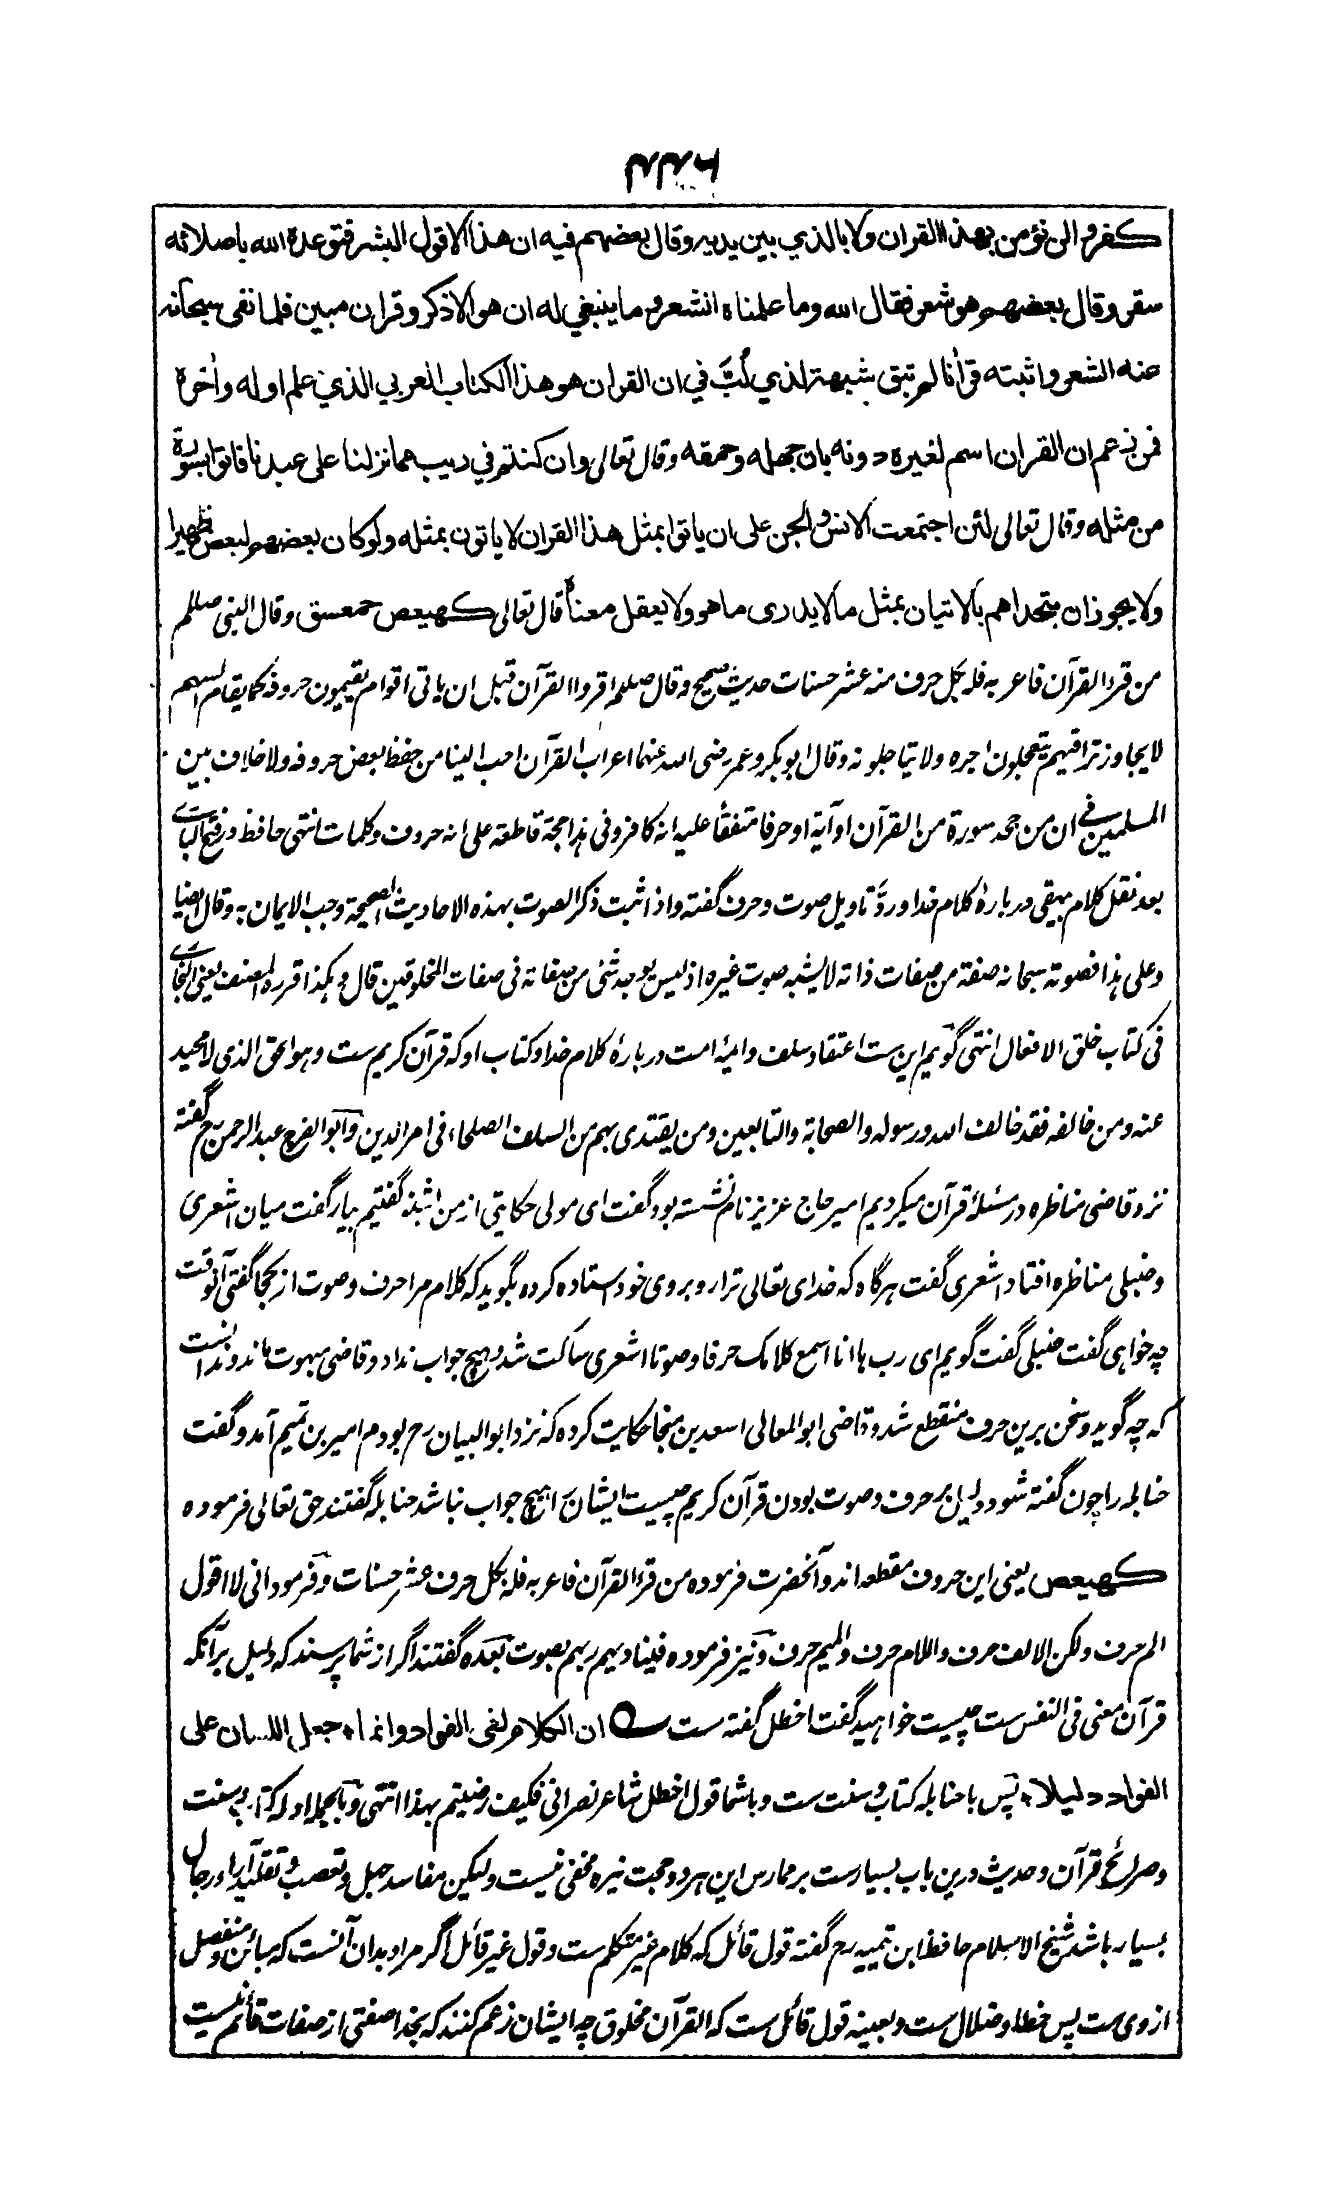 كفروا لن نؤمن بهذا القران ولا بالذي بين يديه وقال بعضهم فيه ان هذا الا قول البشر فتوعده الله باصلائه
سقر وقال بعضهم هو شعر فقال الله وما علمناه الشعر وما ينبغي له ان هو الا ذكر وقران مبين فلما نفى سبحانه
عنه الشعر واثبته قرأنا لم تبق شبهة لذي لُبّ في ان القران هو هذا الكتاب العربي الذي علم اوله وأخره
فمن زعم ان القران اسم لغيره دونه بان جهله وحمقه وقال تعالى وان كنتم في ريب مما نزلنا على عبدنا فاتوا بسورة
من مثله وقال تعالى لئن اجتمعت الانس والجن على ان ياتوا بمثل هذا القران لا ياتون بمثله ولو كان بعضهم لبعض ظهيرا
ولا يجوز ان يتحداهم بالاتيان بمثل ما لا يدرى ما هو ولا يعقل معناه قال تعالى كهيعص حمعسق وقال النبى صللم
من قرء القرآن فاعربه فله بكل حرف منه عشر حسنات حديث صحيح وقال صللم اقروا القرآن قبل ان ياتى اقوام يقيمون حروفه كما يقام السهم
لا يجاوز تراقيهم يتعجلون اجره ولا يتاجلونه وقال ابوبكر وعمر رضى الله عنهما اعراب القرآن احب الينا من حفظ بعض حروفه ولا خلاف بين
المسلمين فى ان من جحد سورة من القرآن او آية او حرفا متفقًا عليه انه كافر وفى هذا حجة قاطعة على انه حروف وكلمات انتهى حافظ در فتح البارى
بعد نقل كلام بيهقى دربارهٔ كلام خدا و ردّ تاويل صوت وحرف گفته واذا ثبت ذكر الصوت بهذه الاحاديث الصحيحة وجب الايمان به وقال ايضا
وعلى هذا فصوته سبحانه صفة من صفات ذاته لا يشبه صوت غيره اذ ليس يوجد شئ من صفاته فى صفات المخلوقين قال وهكذا قرره المصنف يعنى البخارى
فى كتاب خلق الافعال انتهى گويم اين ست اعتقاد سلف وائمهٔ امت دربارهٔ كلام خدا و كتاب او كه قرآن كريم ست وهو الحق الذى لا محيد
عنه ومن خالفه فقد خالف الله ورسوله والصحابة والتابعين ومن يقتدى بهم من السلف الصلحاء فى امر الدين وابوالفرج عبدالرحمن رح گفته
نزد قاضى مناظره در مسئلهٔ قرآن ميكرديم امير حاج عزيز نام نشسته بود گفت اى مولى حكايتى از من بشنو گفتيم بيار گفت ميان اشعرى
وحنبلى مناظره افتاد اشعرى گفت هرگاه كه خداى تعالى ترا روبروى خود استاده كرده بگويد كه كلام مرا حرف وصوت از كجا گفتى آنوقت
چه خواهى گفت حنبلى گفت گويم اى رب ها انا اسمع كلامك حرفا وصوتا اشعرى ساكت شد وهيچ جواب نداد وقاضى مبهوت ماند وندانست
كه چه گويد وسخن برين حرف منقطع شد وقاضى ابو المعالى اسعد بن منجا حكايت كرده كه نزد ابوالبيان رح بودم امير بن تميم آمد وگفت
حنابله را چون گفته شود دليل بر حرف وصوت بودن قرآن كريم چيست ايشان را هيچ جواب نباشد حنابله گفتند حق تعالى فرموده
كهيعص يعنى اين حروف مقطعه اند وآنحضرت فرموده من قرء القرآن فاعربه فله بكل حرف عشر حسنات وفرمود انى لا اقول
الم حرف ولكن الالف حرف واللام حرف والميم حرف ونيز فرموده فيناديهم ربهم بصوت بعده گفتند اگر از شما پرسند كه دليل برآنكه
قرآن معنى فى النفس ست چيست خواهيد گفت اخطل گفته ست ان الكلام لفى الفواد وانما، جعل اللسان على
الفواد دليلا، پس با حنابله كتاب وسنت ست وباشما قول اخطل شاعر نصرانى فكيف رضيتم بهذا انتهى وبالجمله ادلهٔ كتاب وسنت
وصرائح قرآن وحديث درين باب بسيارست بر ممارس اين هر دو حجت نيره مخفى نيست وليكن مفاسد جهل وتعصب وتقليد آرا ورجال
بسيار باشد شيخ الاسلام حافظ ابن تيميه رح گفته قول قائل كه كلام غير متكلم ست وقول غير قائل اگر مراد بدان آنست كه مبائن ومنفصل
از وى ست پس خطا وضلال ست وبعينه قول قائل ست كه القرآن مخلوق چه ايشان زعم كنند كه بخدا صفتى از صفات قائم نيست